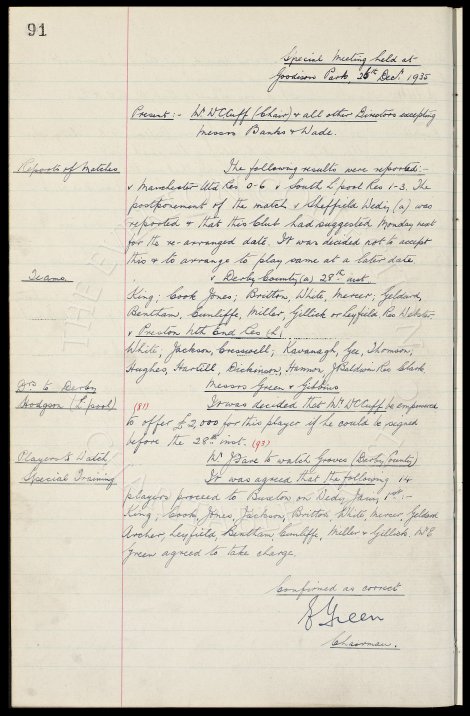 91
Special Meeting held at
Goodison Park, 26th Decr. 1935
Present:- Mr W C Cuff (Chair) & all other Directors excepting
Messrs Banks & Wade.
Reports of Matches
The following results were reported:-
v Manchester Utd Res 0-6 v South L'pool Res 1-3. The
postponement of the match v Sheffield Wedy (a) was
reported & that this Club had suggested Monday next
for the re-arranged date. It was decided not to accept
this & to arrange to play same at a later date
Teams.
v Derby County (a) 28th inst.
King; Cook Jones; Britton, White, Mercer; Geldard,
Bentham, Cunliffe, Miller, Gillick or Leyfield Res Webster
v Preston Nth End Res (h)
White; Jackson, Cresswell; Kavanagh, Gee, Thomson,
Hughes, Hartill, Dickinson, Hannon, J Baldwin Res Clark
Drs to Derby
Messrs Green & Gibbins
Hodgson (L'pool)
(81)
It was decided that Mr W C Cuff be empowered
to offer £2,000 for this player if he could be signed
before the 28th inst. (93)
Players to Watch
Mr J Fare to watch Groves (Derby County)
Special Training
It was agreed that the following 14
players proceed to Buxton on Wedy, Jany 1st:-
King; Cook, Jones, Jackson, Britton, White, Mercer, Geldard
Archer, Leyfield, Bentham, Cunliffe, Miller & Gillick. Mr E
Green agreed to take charge.
Confirmed as correct
E Green
Chairman.